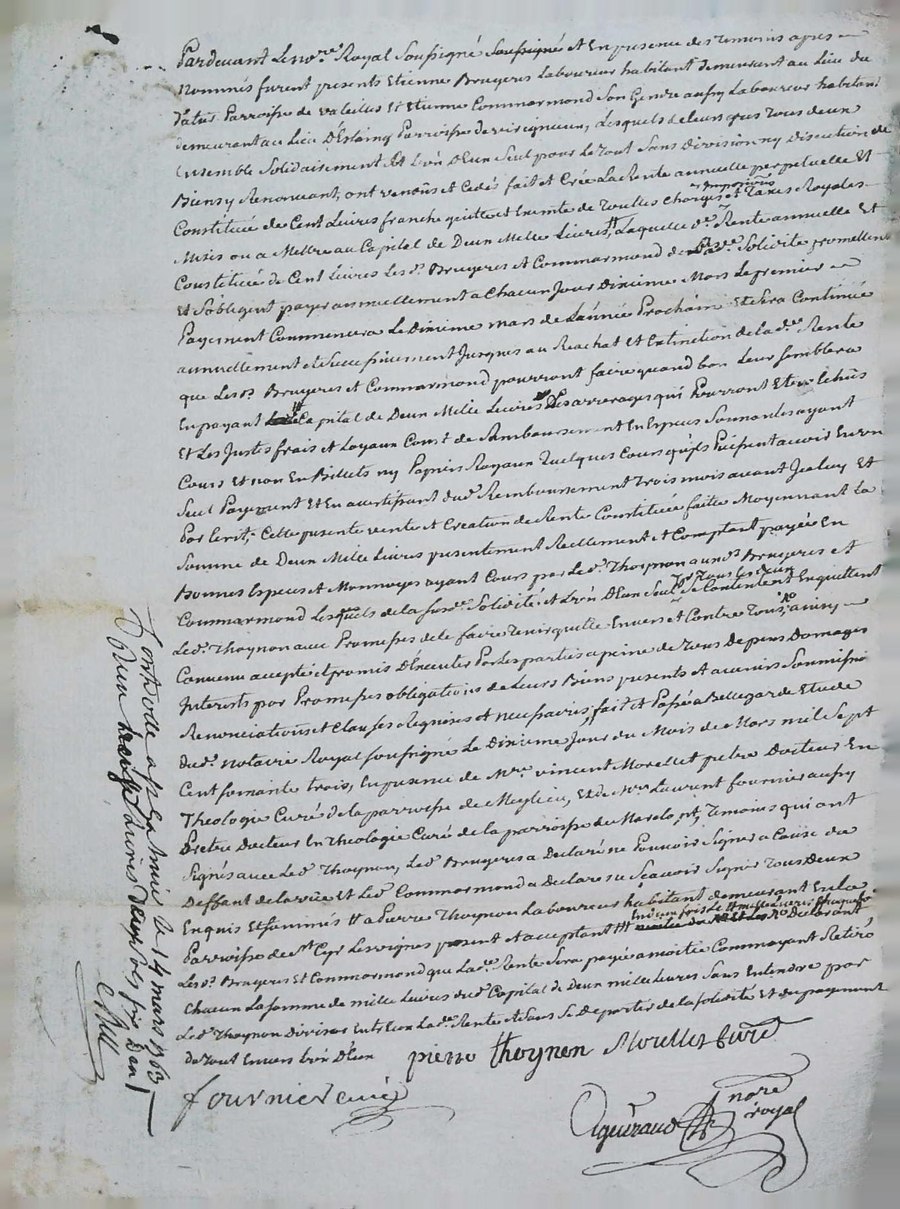 Pardevant Le nore Royal Soussigné Soussigné et En presence des temoins apres
nommés furent presents Etienne Bruyeres Laboureur habitant demeurant au Lieu du
Parroisse de valeilles Et Etienne Commarmond Son Gendre aussy Laboureur habitant
demeurant au Lieu Parroisse de virigneux, Lesquels de leurs gres tous deux
Ensemble Solidairement Et L'un D'Eux Seul pour Le tout Sans Division ny Discution de
Biens y Renoncant, ont vendus et Cedés fait et Crée La Rente annuelle perpetuelle Et
Constituée de Cent Livres franche quitte et Exemte de toutes Charges et impositions Taxes Royales
Mises ou a Mettre au Capital de Deux Mille Livres, Laquelle de Rente annuelle Et
Constituée de Cent Livres Les ds. Bruyeres et Commarmond de Solidité promettent
Et S'obligent payer annuellement a Chacun Jour Dixieme Mars Le premier
Payement Commencera Le Dixieme mars de L'année Prochaine Et Sera Continué
annuellement et Successivement Jusques au Rachat Et Extinction de la de. Rente
que Les ds. Bruyeres et Commarmond pourront faire quand bon Leur Semblera
En payant Capital de Deux Mille Livres Les arrerages qui Pourront Etre Echus
Et Les Justes frais et Loyaux Const de Remboursement En Especes Sonnantes ayant
Cours Et non En Billets ny Papiers Royaux Quelques Cours qu'ils Puissent avoir En un
Seul Payement Et En avertissant du d. Remboursement Trois mois avant Iceluy Et
Par Ecrit, Cette presente vente et Creation de Rente Constituée faite Moyennant La
Somme de Deux Mille Livres presentement Reellement et Comptant payée En
Bonnes Especes et Monnoyes ayant Cours par Le d. Thoynon aux ds. Bruyeres et
Commarmond Lesquels de la susde. Solidité et L'un D'Eux Seul Pr Tous les deux Se Contentent En quittent
Le d. Thoynon avec Promesses de le faire Tenir quitte Envers et Contre Tous, ainsy
Convenu accepté et promis D'Executer Par Les parties a peine de Tous Depens Domages
Interests par Promesses obligations de Leurs Biens presents et avenirs Soumissions
Renonciations et Clauses Requises et necessaires, fait et Passé a Bellegarde Etude
du d. Notaire Royal soussigné Le Dixieme Jour du Mois de Mars mil Sept
Cent soixante trois, En presence de Mre. vincent Morellet pretre Docteur En
Theologie Curé de la parroisse de Meylieu, Et de Mre Laurent fournier aussy
Pretre Docteur En Theologie Curé de la parroisse du Temoins qui ont
Signés avec Le d. Thoynon, Le d. Bruyeres a Declaré ne Pouvoir Signer a Cause du
Deffaut de la vüe Et Le d. Commarmond a Declaré ne Scavoir Signer Tous Deux
Enquis Et sommés # a Pierre Thoynon Laboureur habitant demeurant En La
Parroisse de St. Cyr Les vignes present et acceptant ##
Les ds. Bruyeres Et Commarmond que La de. Rente Sera payée a moitié Comme ayant Retiré
Chacun La Somme de mille Livres du d. Capital de Deux mille Livres Sans Entendre par
Le d. Thoynon Diviser Entr'Eux La de. Rente et Sans Se Departir de la Solidité Et du payement
du Tout Envers L'un D'eux
pierre thoynon Morellet Curé
fournier curé
nore
royal
le 14 mars 1763